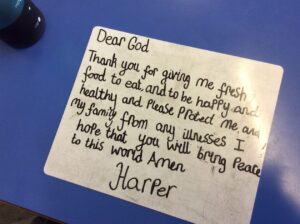 Dear God
Thank you for giving me fresh
food to eat, and to be happy and
healthy and Please Protect me, and
my family from any illnesses I
hope that you will bring Peace
to this world Amen
Harper